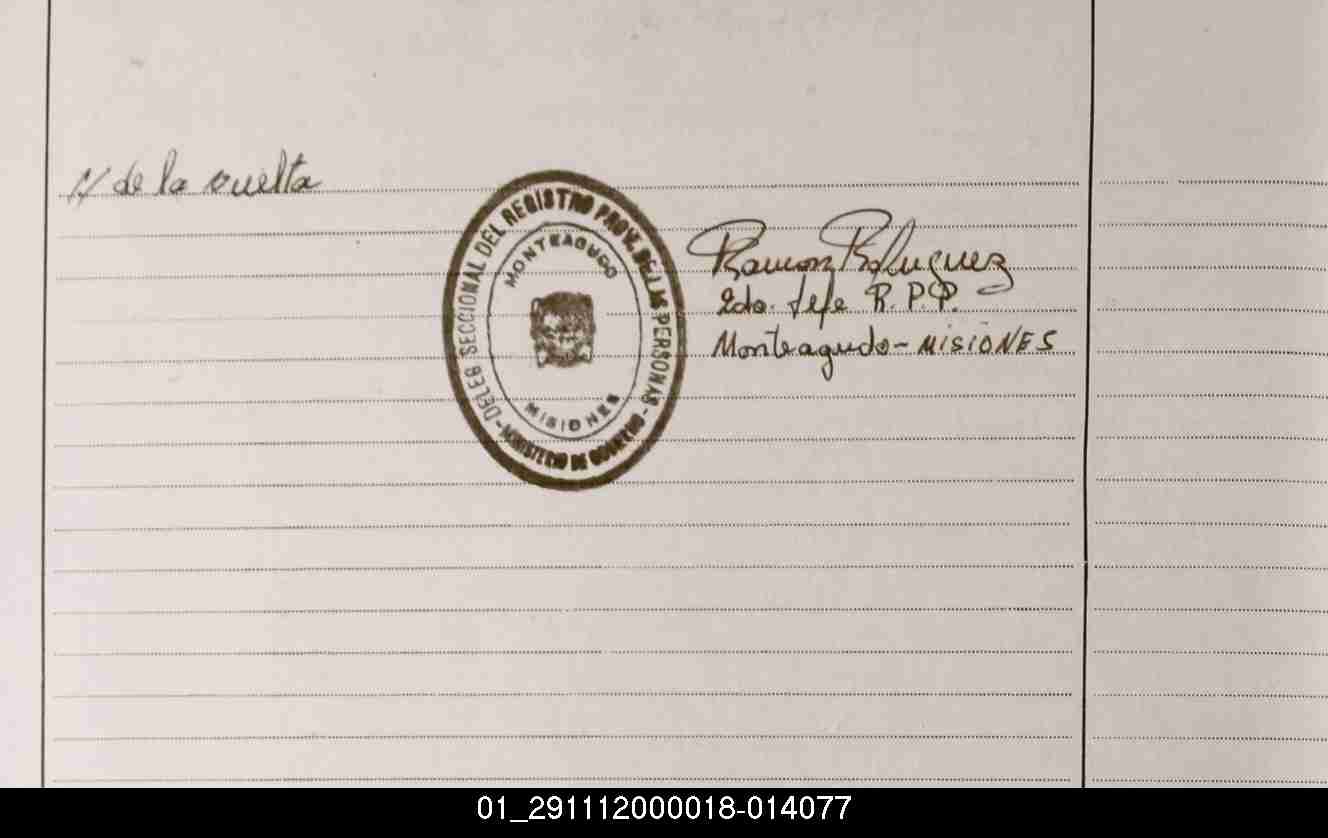 // de la vuelta
DELEG SECCIONAL DEL REGISTRO PROV. DE LAS PERSONAS
- MINISTERIO DE GOBIERNO -
MONTEAGUDO
MISIONES
Ramon Rodriguez
2do. Jefe R.P.P.
Monteagudo - MISIONES
01_291112000018-014077